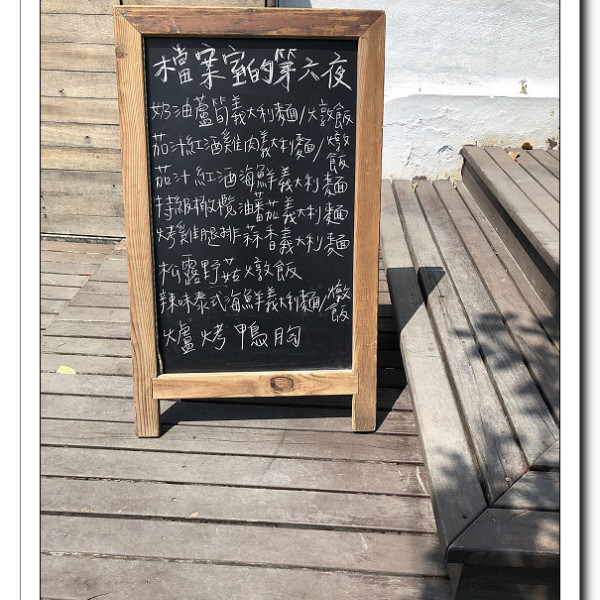 檔案室的第六夜
奶油蘆筍義大利麵/燉飯
茄汁紅酒雞肉義大利麵/燉飯
茄汁紅酒海鮮義大利麵
特級橄欖油蕃茄義大利麵
烤雞腿排蒜香義大利麵
松露野菇燉飯
辣味泰式海鮮義大利麵/燉飯
爐烤鴨胸